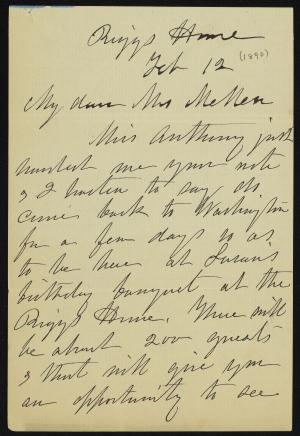 Riggs House
Feb 12
(1890)
My dear Mrs
Miss Anthony just
handed me your note
& I hasten to say do
come back to Washington
for a few days so as
to be here at Susan's
birthday banquet at the
Riggs House. There will
be about 200 guests
& that will give you
an opportunity to see